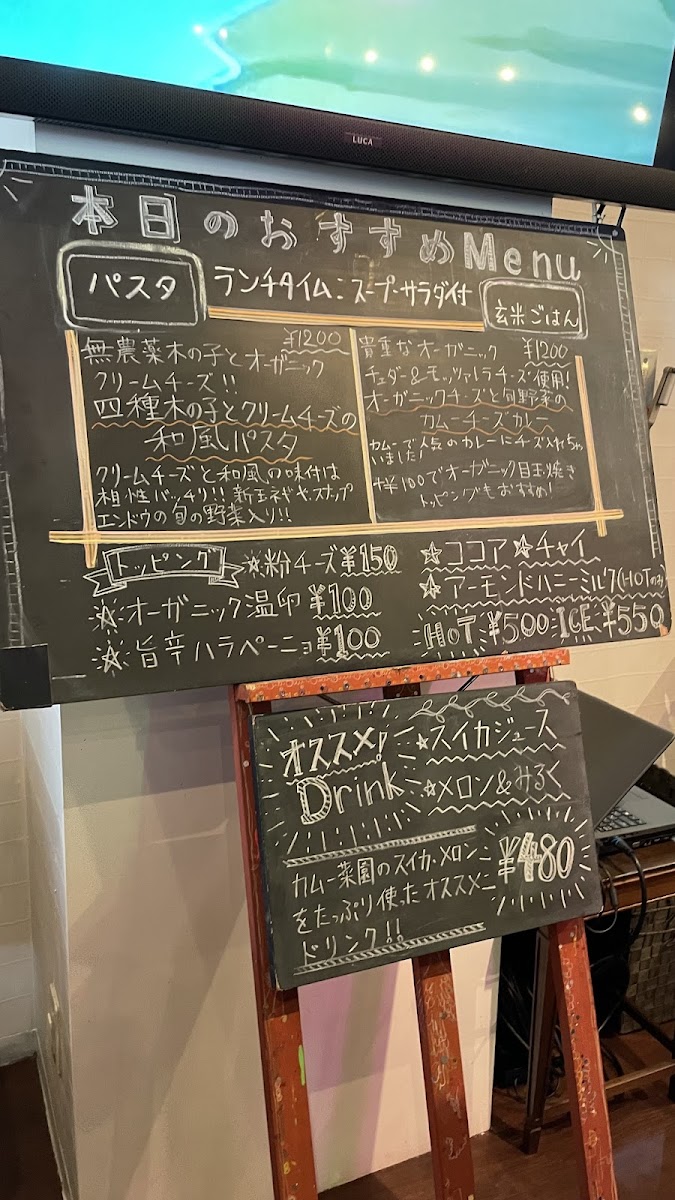 LUCA
本日のおすすめMenu
パスタ
ランチタイム:スープ・サラダ付
玄米ごはん
¥1200
無農薬木の子とオーガニック
クリームチーズ!!
四種木の子とクリームチーズの
和風パスタ
クリームチーズと和風の味付は
相性バッチリ!! 新玉ネギやスナップ
エンドウの旬の野菜入り!!
貴重なオーガニック ¥1200
チェダー&モッツァレラチーズ使用!
オーガニックチーズと旬野菜の
カムーチーズカレー
カムーで人気のカレーにチーズ入れちゃ
いました!
+¥100でオーガニック目玉焼き
トッピングもおすすめ!
トッピング
☆粉チーズ¥150
☆オーガニック温卵 ¥100
☆旨辛ハラペーニョ¥100
☆ココア ☆チャイ
☆アーモンドハニーミルク(HOTのみ)
HOT ¥500 ICE ¥550
オススメ!
Drink
☆スイカジュース
☆メロン&みるく
¥480
カムー菜園のスイカ・メロン
をたっぷり使ったオススメ
ドリンク!!